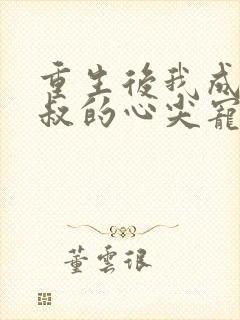 重生後我成
叔的心尖寵
董雲很